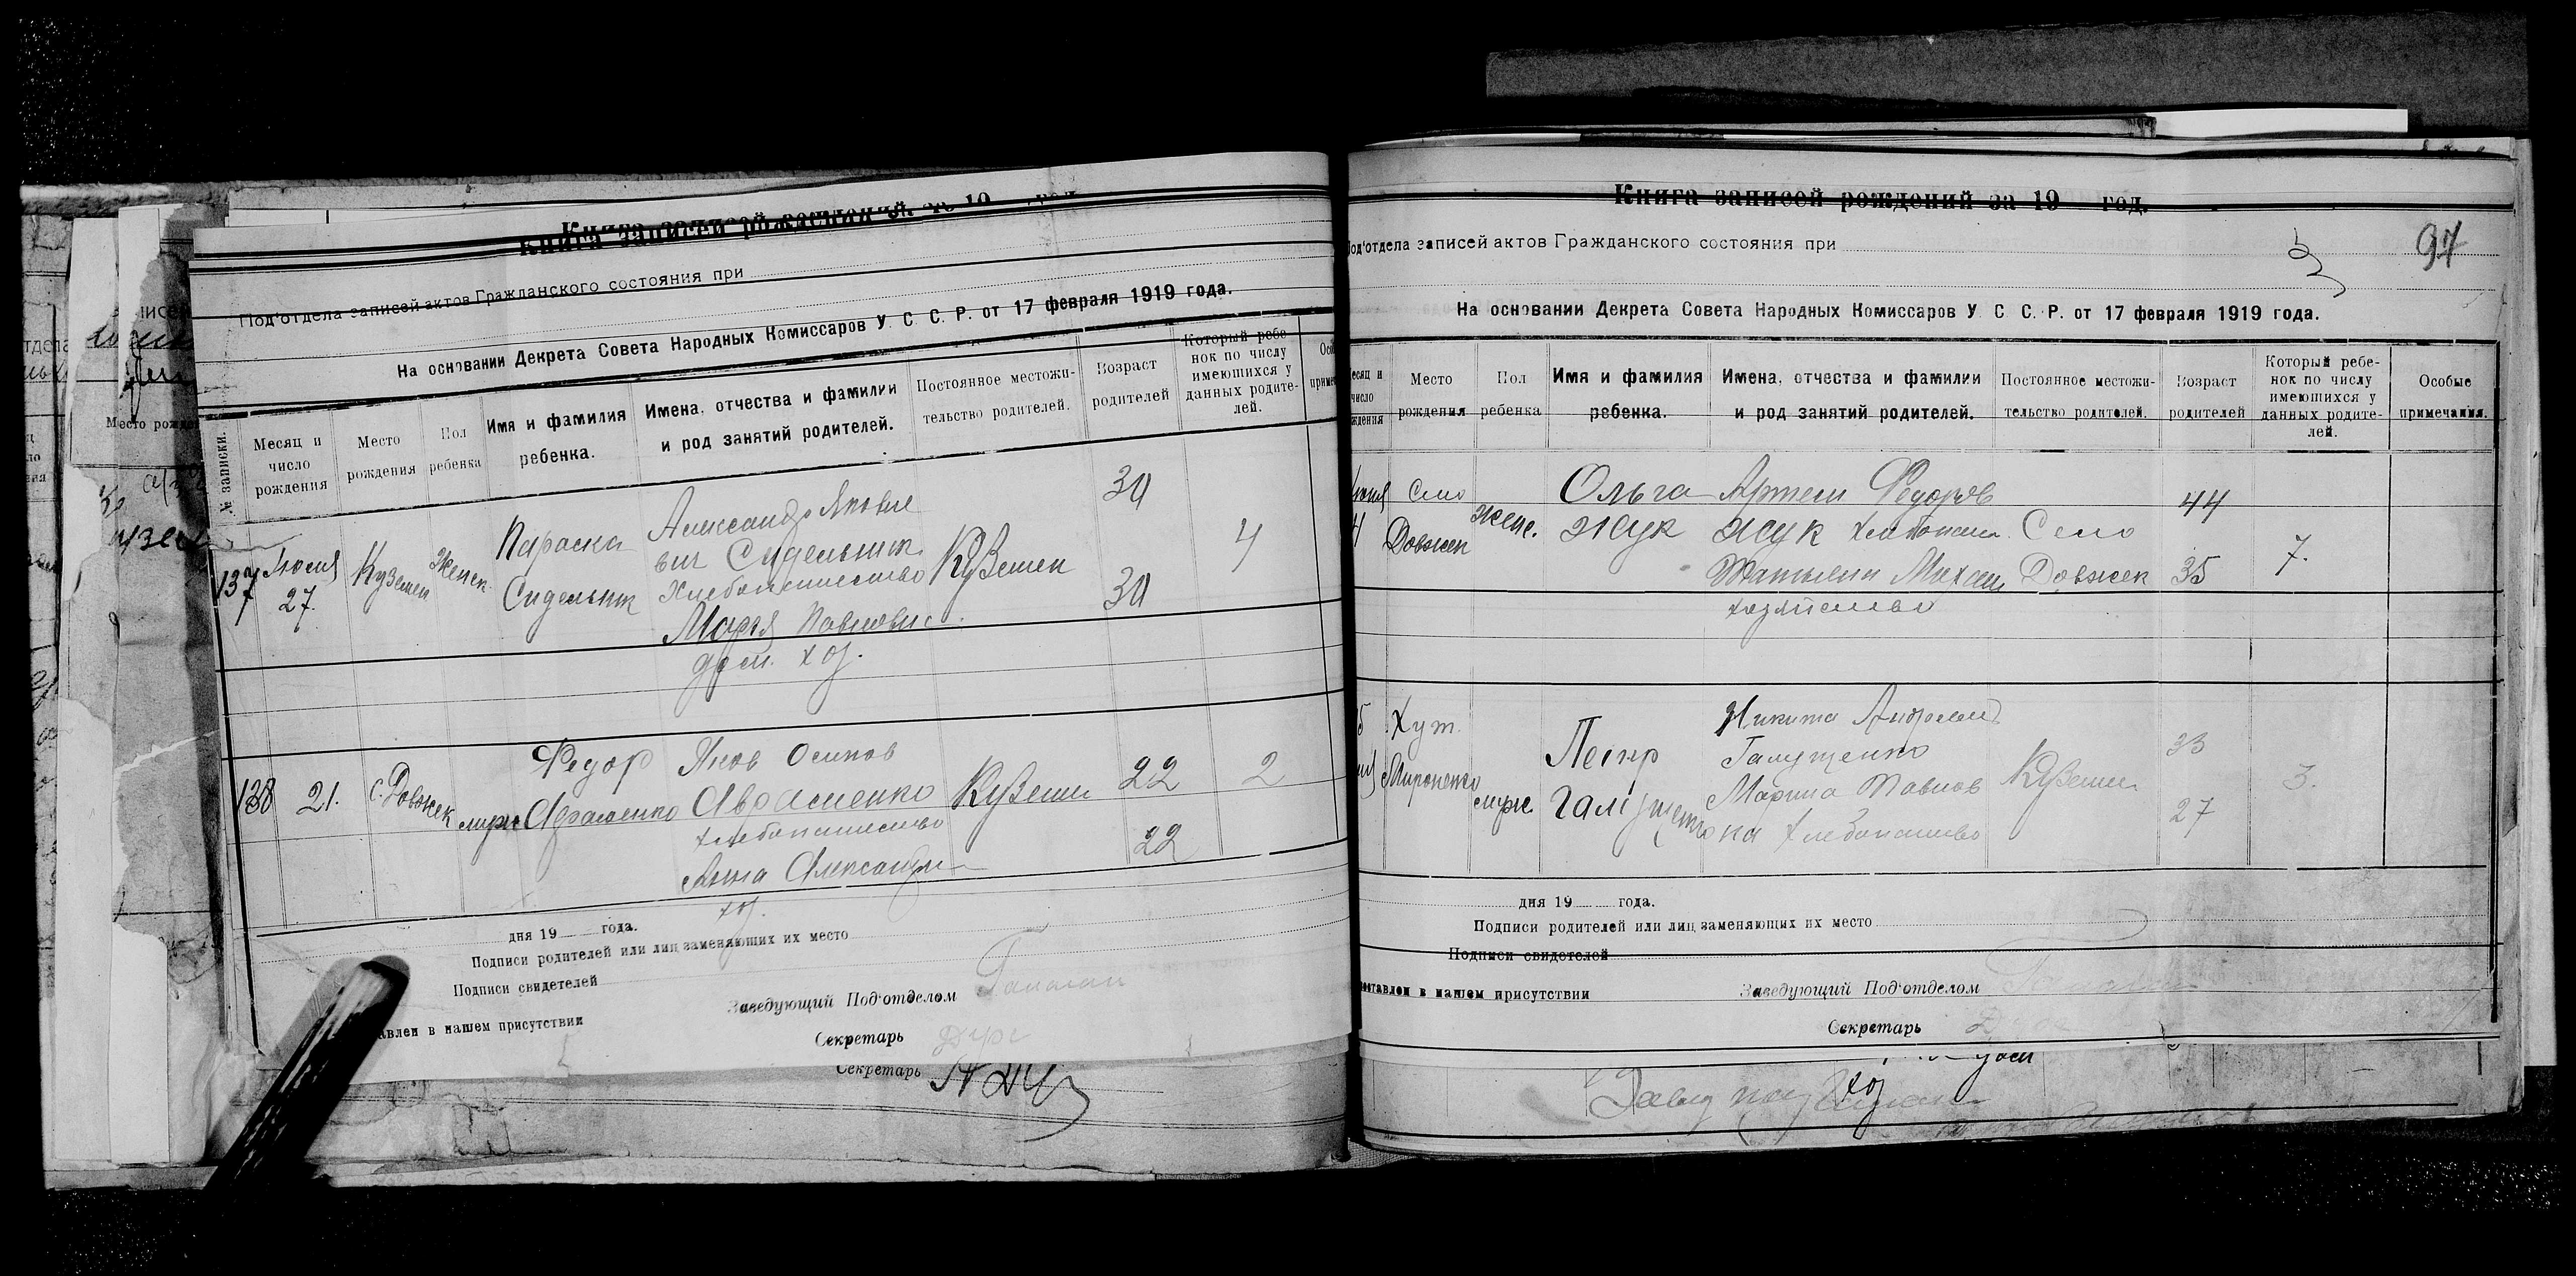 Книга записей рождений за 19 год.
Под'отдела записей актов Гражданского состояния при
На основании Декрета Совета Народных Комиссаров У. С. С. Р. от 17 февраля 1919 года.
№ записки.
Месяц и число рождения
Место рождения
Пол ребенка
Имя и фамилия ребенка.
Имена, отчества и фамилии и род занятий родителей.
Постоянное местожительство родителей.
Возраст родителей
Который ребенок по числу имеющихся у данных родителей.
137
Июля 27.
Куземен
Женск.
Параска Сидельник
Александр Яковлевич Сидельник
Хлебопашество
Марья Павловн
дом. хоз.
Куземен
30
30
4
138
21.
с. Довжек
муж
Федор Авраменко
Яков Осипов
Авраменко
хлебопашество
Анна Александр
хоз.
Куземен
22
22
2
дня 19 года.
Подписи родителей или лиц заменяющих их место
Подписи свидетелей
Заведующий Под'отделом
авлен в нашем присутствии
Секретарь
Секретарь
Книга записей рождений за 19 год.
97
Под'отдела записей актов Гражданского состояния при
На основании Декрета Совета Народных Комиссаров У. С. С. Р. от 17 февраля 1919 года.
Место рождения
Пол ребенка
Имя и фамилия ребенка.
Имена, отчества и фамилии и род занятий родителей.
Постоянное местожительство родителей.
Возраст родителей
Который ребенок по числу имеющихся у данных родителей.
Особые примечания.
Село Довжек
женс.
Ольга Жук
Артем Федоров
Жук
Татьяна Михаил
хозяйство
Село Довжек
44
35
7.
Хут. Мироненко
муж
Петр Галущенко
Никита Андреев
Галущенко
Марина Павловна
хлебопашество
Куземен
33
27
3.
дня 19 года.
Подписи родителей или лиц заменяющих их место
Подписи свидетелей
оставлен в нашем присутствии
Заведующий Под'отделом
Секретарь
хоз